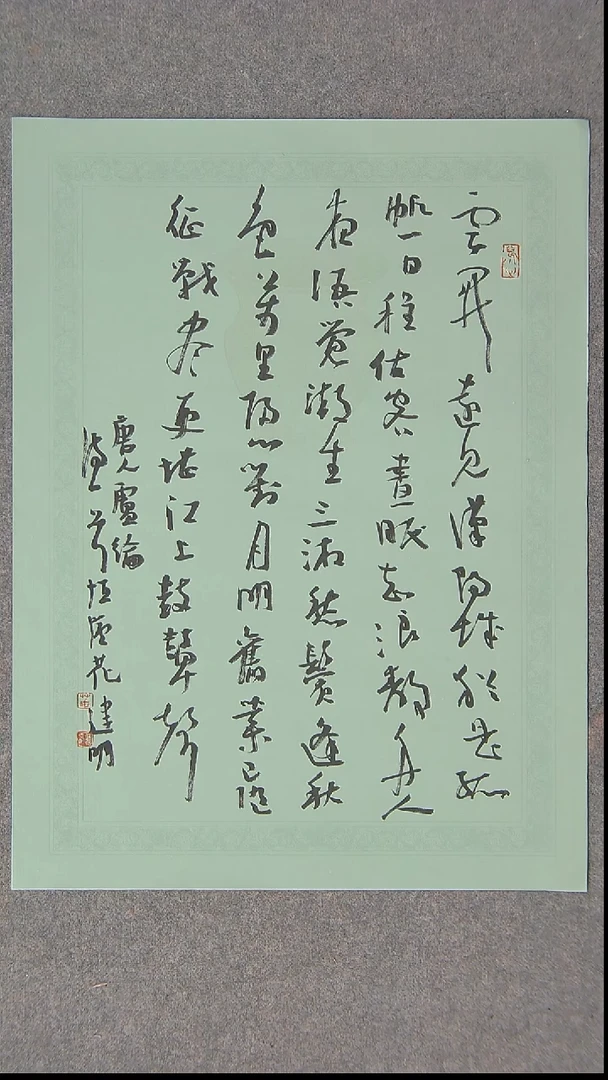 雲開遠見漢陽城猶是孤
帆一日程估客晝眠知浪靜舟人
夜語覺潮生三湘愁鬢逢秋
色萬里歸心對月明舊業已隨
征戰盡更堪江上鼓鼙聲
唐人盧綸
花建明